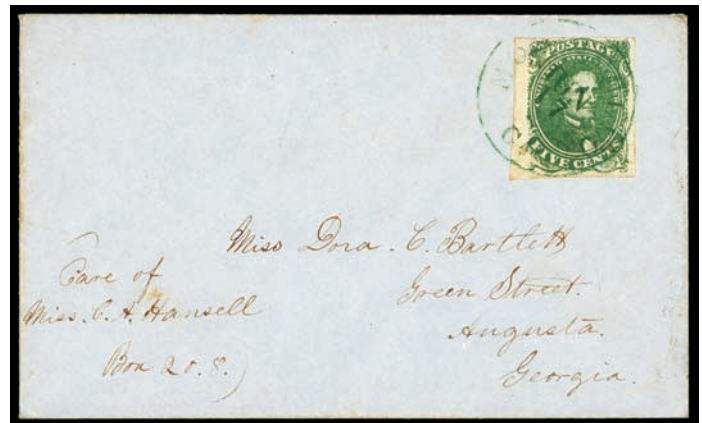 POSTAGE
FIVE CENTS
Miss Dora. C. Bartlett
Green Street.
Augusta.
Georgia.
Care of
Miss. C. A. Hansell
Box 20.8.)